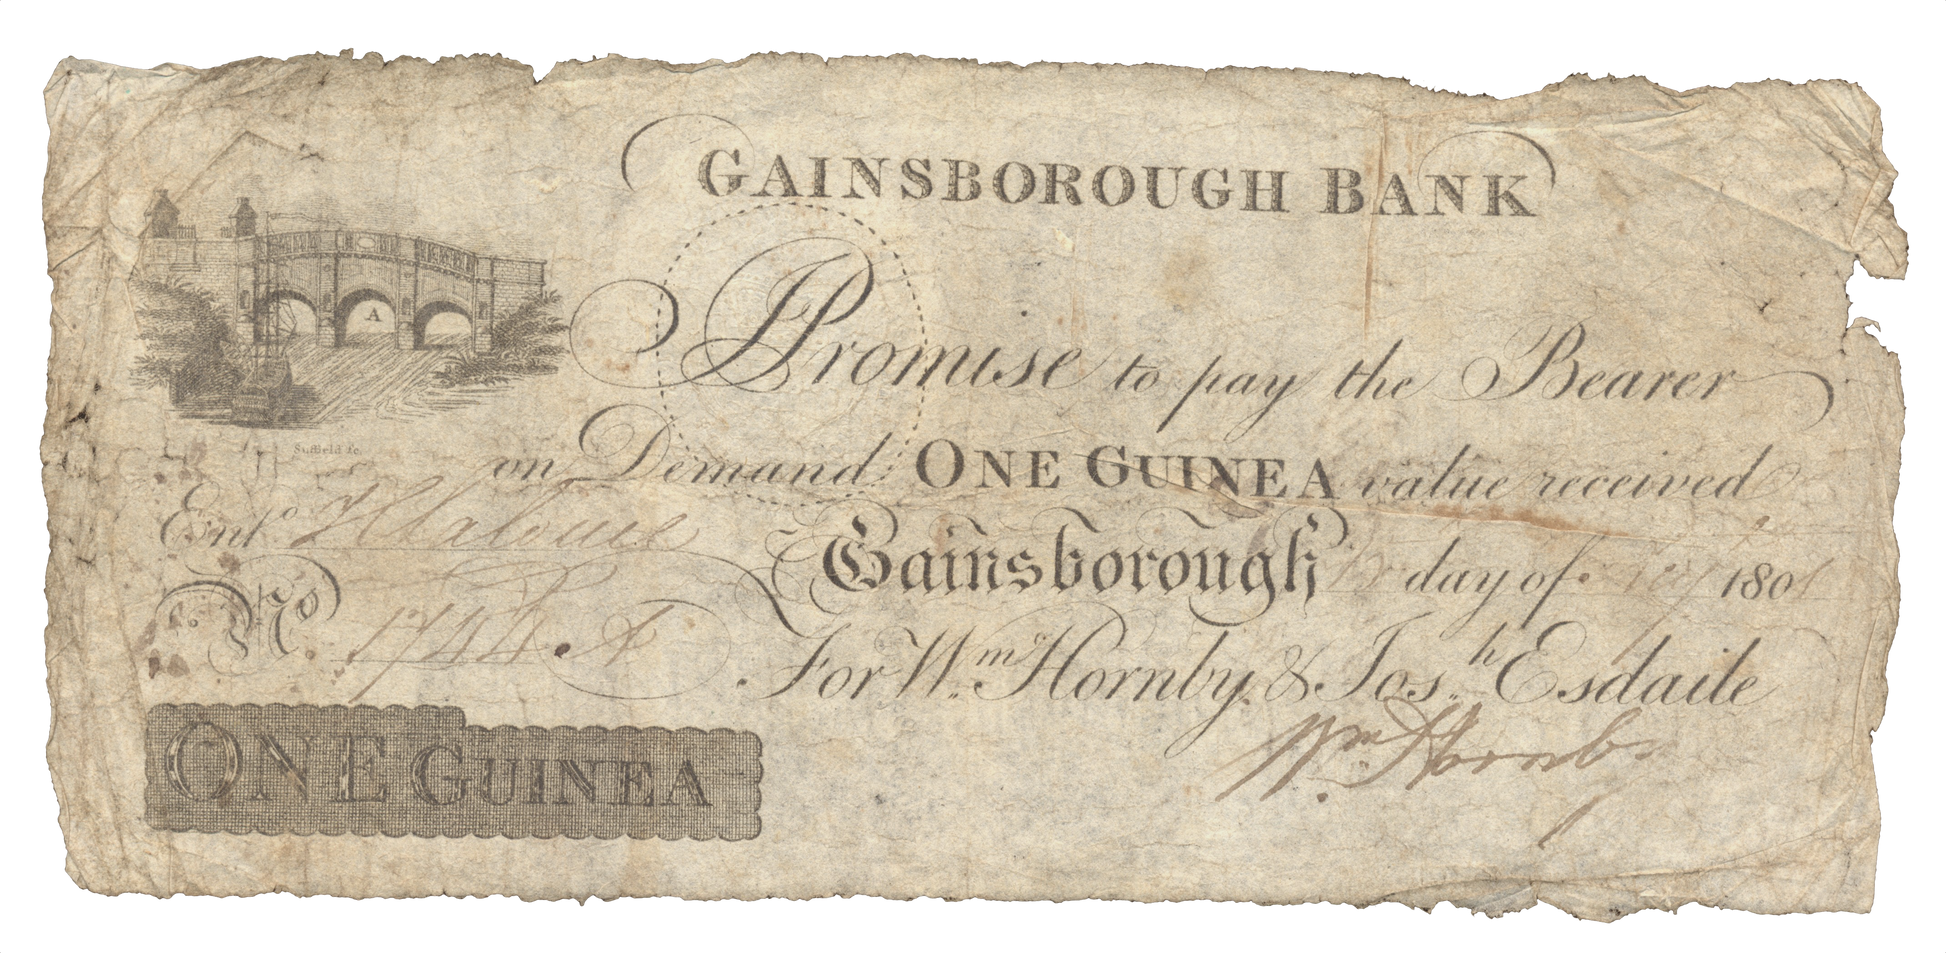 GAINSBOROUGH BANK
A
I Promise to pay the Bearer
Suffield sc.
on Demand ONE GUINEA value received
Entd.
Gainsborough day of 1801
No. 1744 A
For Wm. Hornby & Josh. Esdaile
Wm. Hornby
ONE GUINEA